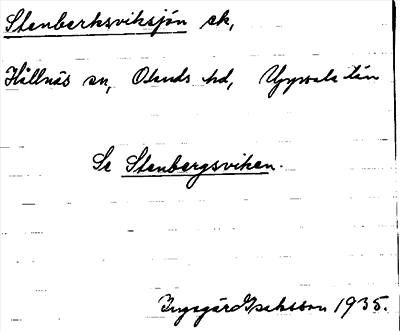 Stenberksviksjön sk,
Hållnäs sn, Olands hd, Uppsala län
Se Stenbergsviken.
Ingegärd Isaksson 1935.